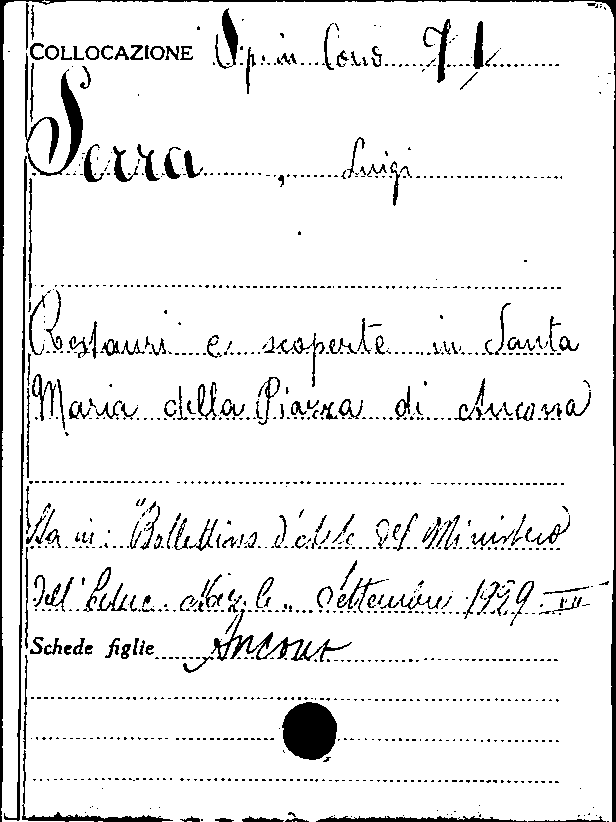 COLLOCAZIONE Op. in Cons 71
Serra, Luigi
Restauri e scoperte in Santa
Maria della Piazza di Ancona
Sta in: "Bollettino d'Arte del Ministero
dell'Educ. Naz.le" Settembre 1929 - VII
Schede figlie Ancona